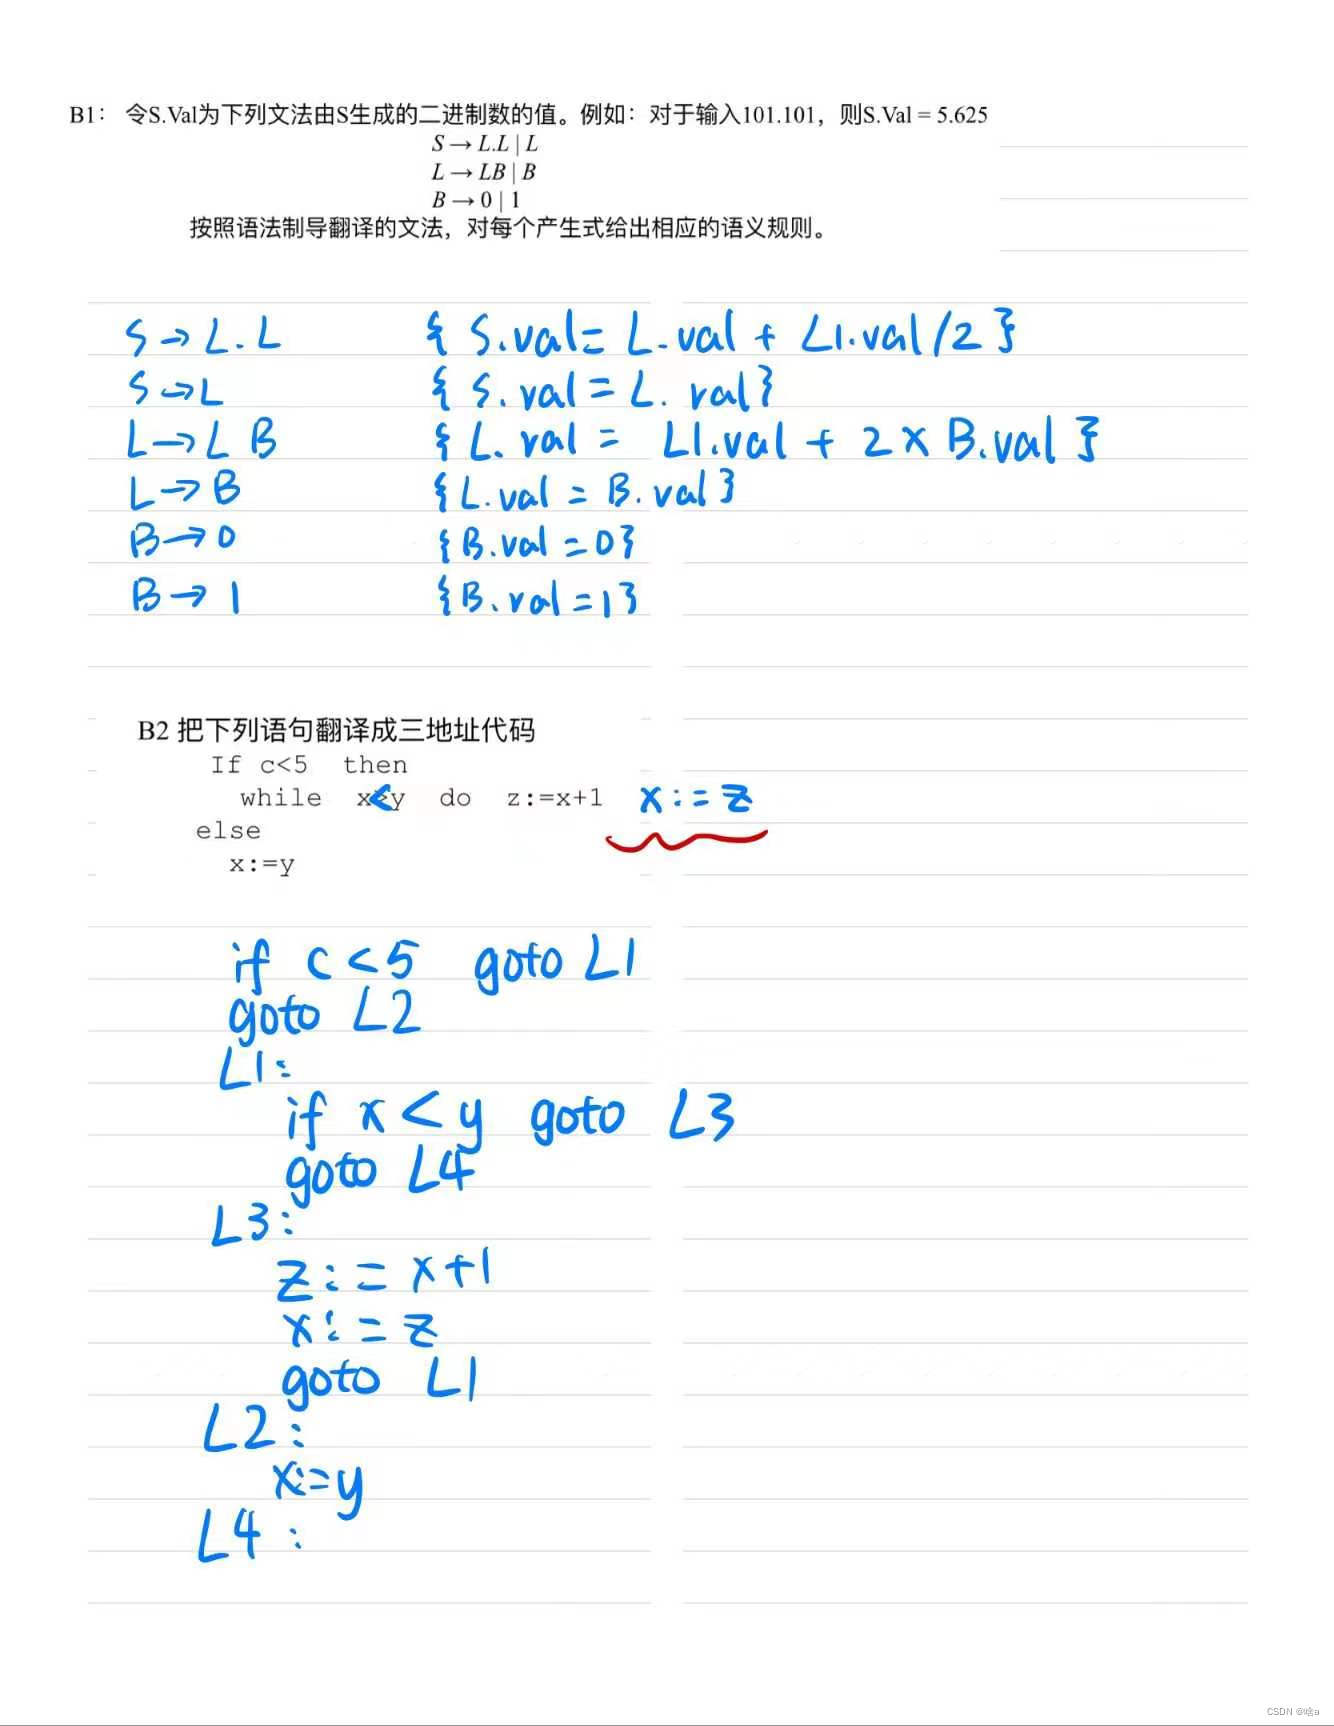 B1： 令S.Val为下列文法由S生成的二进制数的值。例如：对于输入101.101，则S.Val = 5.625
S → L.L | L
L → LB | B
B → 0 | 1
按照语法制导翻译的文法，对每个产生式给出相应的语义规则。
S → L.L { S.val = L.val + L1.val/2 }
S → L { S.val = L.val }
L → L B { L.val = L1.val + 2 × B.val }
L → B { L.val = B.val }
B → 0 { B.val = 0 }
B → 1 { B.val = 1 }
B2 把下列语句翻译成三地址代码
If c<5 then
while x<y do z:=x+1 x:=z
else
x:=y
if c < 5 goto L1
goto L2
L1:
if x < y goto L3
goto L4
L3:
z := x+1
x := z
goto L1
L2:
x:=y
L4:
CSDN @啥a